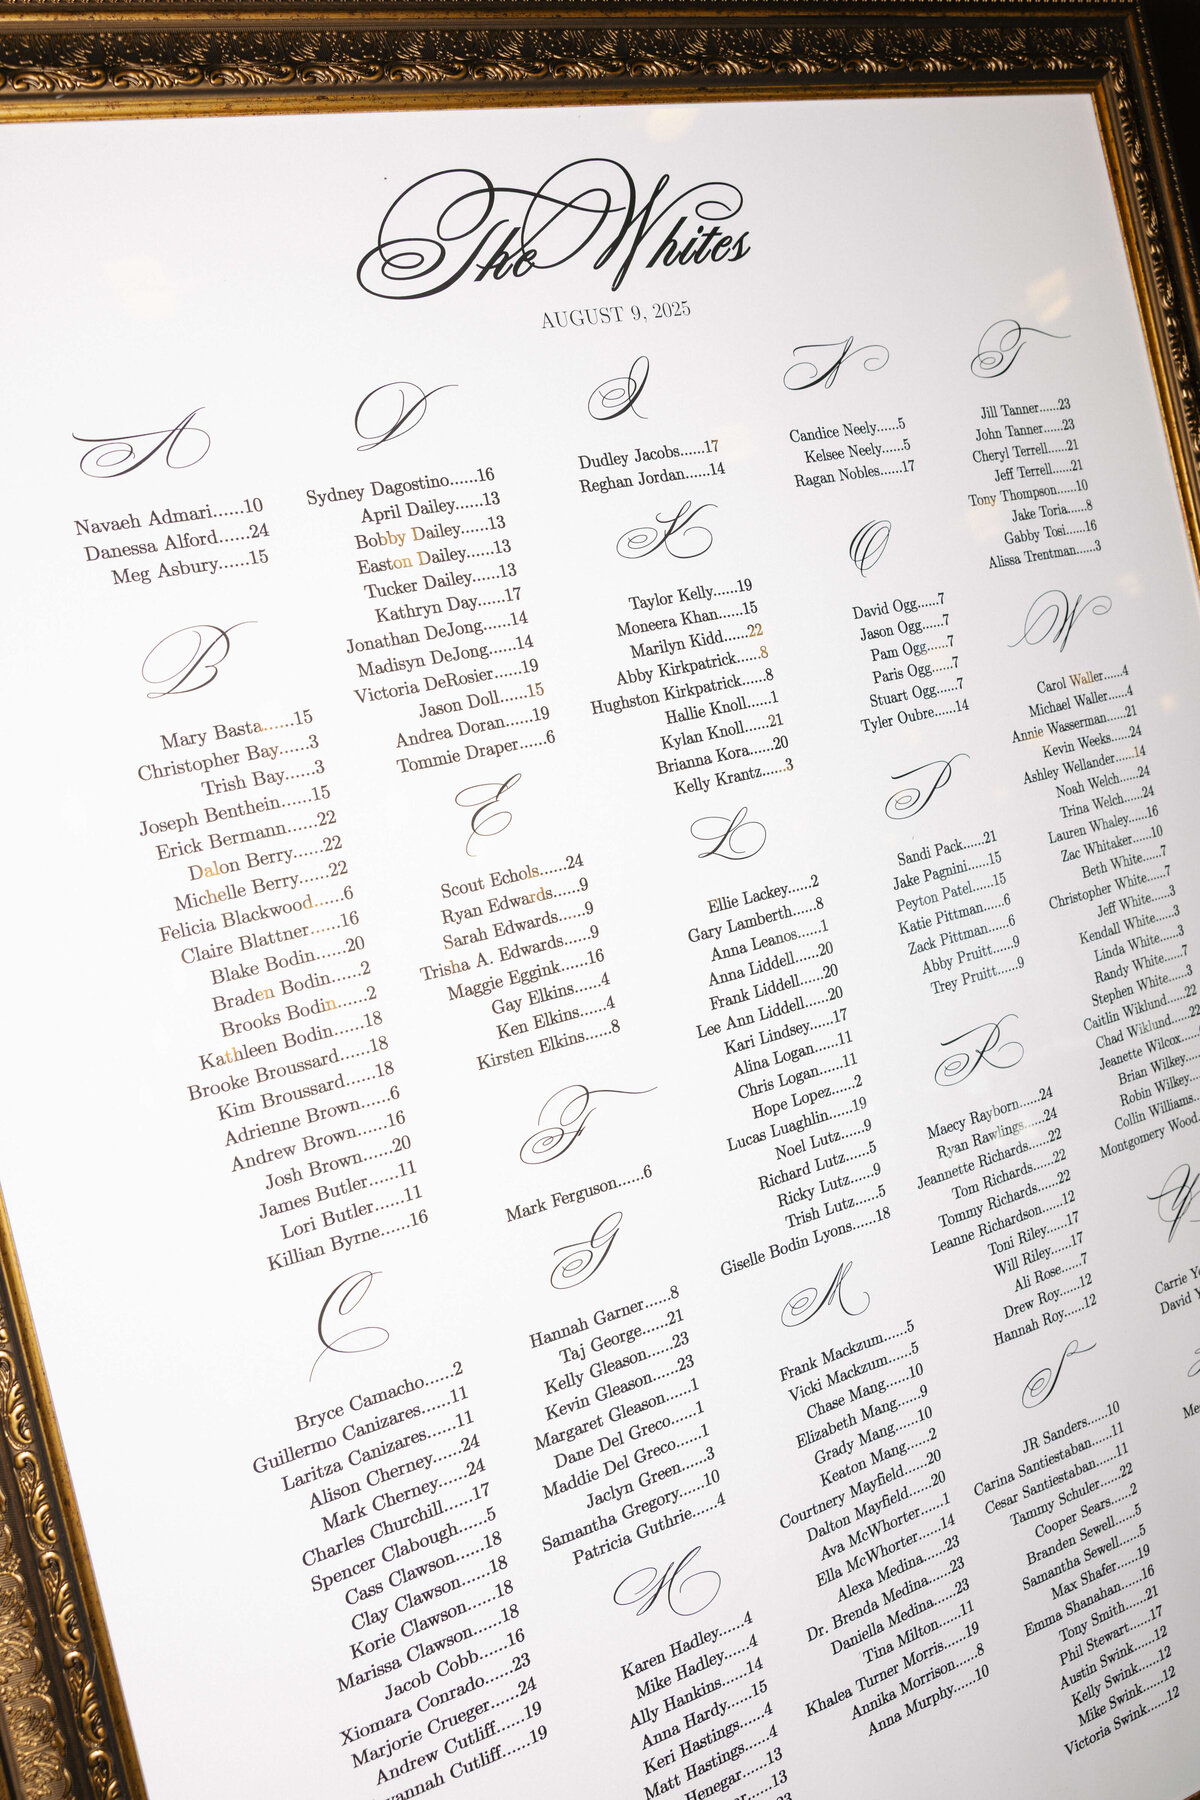 The Whites
AUGUST 9, 2025
A
Navaeh Admari......10
Danessa Alford......24
Meg Asbury......15
B
Mary Basta......15
Christopher Bay......3
Trish Bay......3
Joseph Benthein......15
Erick Bermann......22
Dalon Berry......22
Michelle Berry......22
Felicia Blackwood......6
Claire Blattner......16
Blake Bodin......20
Braden Bodin......2
Brooks Bodin......2
Kathleen Bodin......18
Brooke Broussard......18
Kim Broussard......18
Adrienne Brown......6
Andrew Brown......16
Josh Brown......20
James Butler......11
Lori Butler......11
Killian Byrne......16
C
Bryce Camacho......2
Guillermo Canizares......11
Laritza Canizares......11
Alison Cherney......24
Mark Cherney......24
Charles Churchill......17
Spencer Clabough......5
Cass Clawson......18
Clay Clawson......18
Korie Clawson......18
Marissa Clawson......18
Jacob Cobb......16
Xiomara Conrado......23
Marjorie Crueger......24
Andrew Cutliff......19
Cutliff......19
D
Sydney Dagostino......16
April Dailey......13
Bobby Dailey......13
Easton Dailey......13
Tucker Dailey......13
Kathryn Day......17
Jonathan DeJong......14
Madisyn DeJong......14
Victoria DeRosier......19
Jason Doll......15
Andrea Doran......19
Tommie Draper......6
E
Scout Echols......24
Ryan Edwards......9
Sarah Edwards......9
Trisha A. Edwards......9
Maggie Eggink......16
Gay Elkins......4
Ken Elkins......4
Kirsten Elkins......8
F
Mark Ferguson......6
G
Hannah Garner......8
Taj George......21
Kelly Gleason......23
Kevin Gleason......23
Margaret Gleason......1
Dane Del Greco......1
Maddie Del Greco......1
Jaclyn Green......3
Samantha Gregory......10
Patricia Guthrie......4
H
Karen Hadley......4
Mike Hadley......4
Ally Hankins......14
Anna Hardy......15
Keri Hastings......4
Matt Hastings......4
Henegar......13
......13
J
Dudley Jacobs......17
Reghan Jordan......14
K
Taylor Kelly......19
Moneera Khan......15
Marilyn Kidd......22
Abby Kirkpatrick......8
Hughston Kirkpatrick......8
Hallie Knoll......1
Kylan Knoll......21
Brianna Kora......20
Kelly Krantz......3
L
Ellie Lackey......2
Gary Lamberth......8
Anna Leanos......1
Anna Liddell......20
Frank Liddell......20
Lee Ann Liddell......20
Kari Lindsey......17
Alina Logan......11
Chris Logan......11
Hope Lopez......2
Lucas Luaghlin......19
Noel Lutz......9
Richard Lutz......5
Ricky Lutz......9
Trish Lutz......5
Giselle Bodin Lyons......18
M
Frank Mackzum......5
Vicki Mackzum......5
Chase Mang......10
Elizabeth Mang......9
Grady Mang......10
Keaton Mang......2
Courtnery Mayfield......20
Dalton Mayfield......20
Ava McWhorter......1
Ella McWhorter......14
Alexa Medina......23
Dr. Brenda Medina......23
Daniella Medina......23
Tina Milton......11
Khalea Turner Morris......19
Annika Morrison......8
Anna Murphy......10
N
Candice Neely......5
Kelsee Neely......5
Ragan Nobles......17
O
David Ogg......7
Jason Ogg......7
Pam Ogg......7
Paris Ogg......7
Stuart Ogg......7
Tyler Oubre......14
P
Sandi Pack......21
Jake Pagnini......15
Peyton Patel......15
Katie Pittman......6
Zack Pittman......6
Abby Pruitt......9
Trey Pruitt......9
R
Maecy Rayborn......24
Ryan Rawlings......24
Jeannette Richards......22
Tom Richards......22
Tommy Richards......22
Leanne Richardson......12
Toni Riley......17
Will Riley......17
Ali Rose......7
Drew Roy......12
Hannah Roy......12
S
JR Sanders......10
Carina Santiestaban......11
Cesar Santiestaban......11
Tammy Schuler......22
Cooper Sears......2
Branden Sewell......5
Samantha Sewell......5
Max Shafer......19
Emma Shanahan......16
Tony Smith......21
Phil Stewart......17
Austin Swink......12
Kelly Swink......12
Mike Swink......12
Victoria Swink......12
T
Jill Tanner......23
John Tanner......23
Cheryl Terrell......21
Jeff Terrell......21
Tony Thompson......10
Jake Toria......8
Gabby Tosi......16
Alissa Trentman......3
W
Carol Waller......4
Michael Waller......4
Annie Wasserman......21
Kevin Weeks......24
Ashley Wellander......14
Noah Welch......24
Trina Welch......24
Lauren Whaley......16
Zac Whitaker......10
Beth White......7
Christopher White......7
Jeff White......3
Kendall White......3
Linda White......3
Randy White......7
Stephen White......3
Caitlin Wiklund......22
Chad Wiklund......22
Jeanette Wilcox......
Brian Wilkey......
Robin Wilkey......
Collin Williams......
Montgomery Wood......
Y
Carrie
David